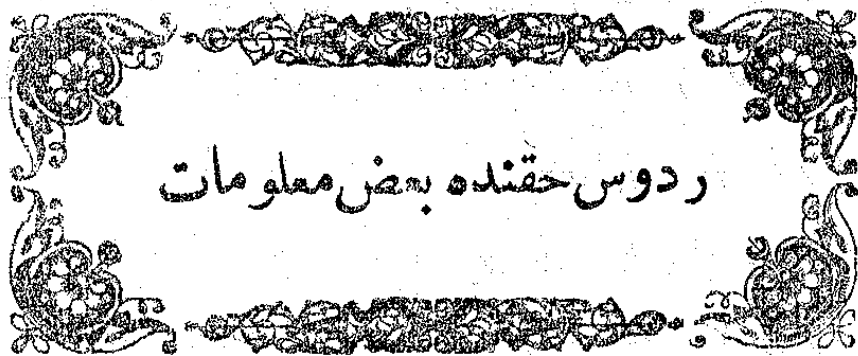 ردوس حقنده بعض معلومات